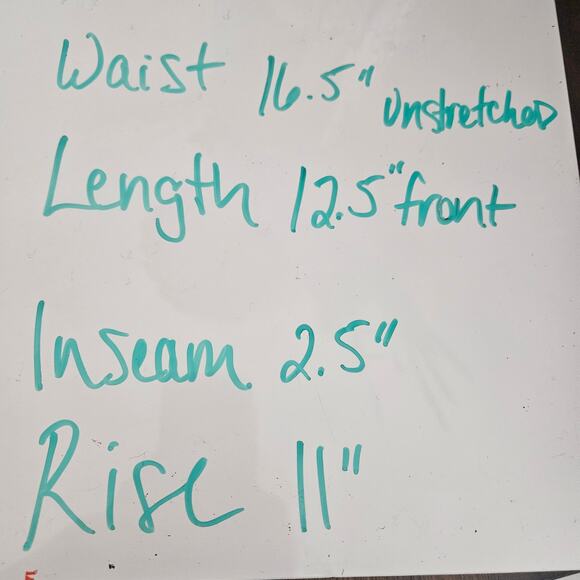 Waist 16.5" Unstretched
Length 12.5" front
Inseam 2.5"
Rise 11"